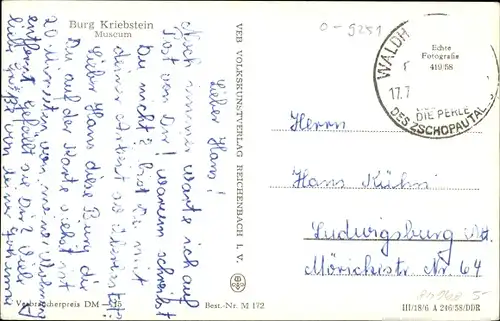 Burg Kriebstein
Museum
Lieber Hans!
Noch immer warte ich auf
Post von Dir! Warum schreibst
Du nicht? bist Du mit
deiner Arbeit so überlastet?
Lieber Hans diese Burg die
Du auf der Karte siehst ist
20 Minuten von meiner Wohnung
entfernt. Gefällt sie Dir? Viele
liebe Grüße von deiner
Verbraucherpreis DM
Best.-Nr. M 172
VEB VOLKSKUNSTVERLAG REICHENBACH I. V.
0-9251
WALDH
17.7
DIE PERLE
DES ZSCHOPAUTAL
Echte
Fotografie
419/58
Herrn
Hans Kühn
Ludwigsburg
Mörickestr. Nr. 64
III/18/6 A 246/58/DDR